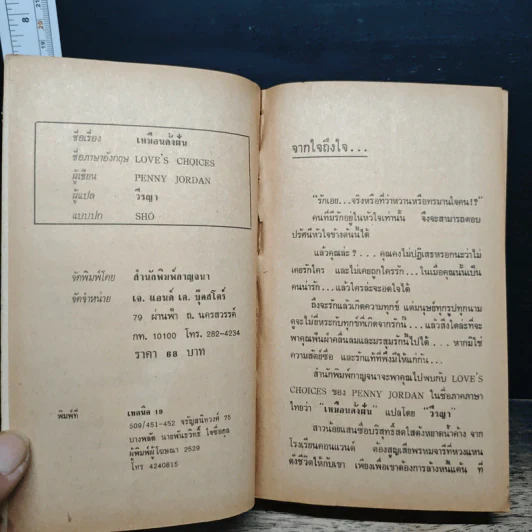 ชื่อเรื่อง เหมือนดั่งฝัน
ชื่อภาษาอังกฤษ LOVE'S CHOICES
ผู้เขียน PENNY JORDAN
ผู้แปล วีรญา
แบบปก SHO
จัดพิมพ์โดย สำนักพิมพ์กาญจนา
จัดจำหน่าย เจ. แอนด์ เค. บุ๊คสโตร์
79 ผ่านฟ้า ถ. นครสวรรค์
กท. 10100 โทร. 282-4234
ราคา 68 บาท
พิมพ์ที่ เทคนิค 19
509/451-452 จรัญสนิทวงศ์ 75
บางพลัด นายพันธวิทธิ์ ใจซื่อกุล
ผู้พิมพ์ผู้โฆษณา 2529
โทร 4240815
จากใจถึงใจ...
"รักเอย...จริงหรือที่ว่าหวานหรือทรมานใจคน!?"
คนที่มีรักอยู่ในหัวใจเท่านั้น จึงจะสามารถตอบ
ปริศนีหัวใจข้างต้นนี้ได้
แล้วคุณล่ะ ?... คุณคงไม่ปฏิเสธหรอกนะว่าไม่
เคยรักใคร และไม่เคยถูกใครรัก...ในเมื่อคุณนั้นเป็น
คนน่ารัก...แล้วใครล่ะจะอดใจได้
ถึงจะรักแล้วเกิดความทุกข์ แต่มนุษย์ทุกรูปทุกนาม
ดูจะไม่ยี่หระกับทุกข์ที่เกิดจากรักนี้...แล้วสิ่งใดล่ะที่จะ
พาคุณพ้นฝ่าคลื่นลมและมรสุมรักนี้ไปได้... หากมิใช่
ความสัตย์ซื่อ และรักแท้ที่พึงมีให้แก่กัน...
สำนักพิมพ์กาญจนาจะพาคุณไปพบกับ LOVE'S
CHOICES ของ PENNY JORDAN ในชื่อภาคภาษา
ไทยว่า "เหมือนดั่งฝัน" แปลโดย "วีรญา"
สาวน้อยแสนซื่อบริสุทธิ์สดใสดังหยาดน้ำค้าง จาก
โรงเรียนคอนแวนต์ ต้องสูญเสียพรหมจารีที่หวงแหน
ดังชีวิตให้กับเขา เพียงเพื่อเขาต้องการล้างหนี้แค้น ที่